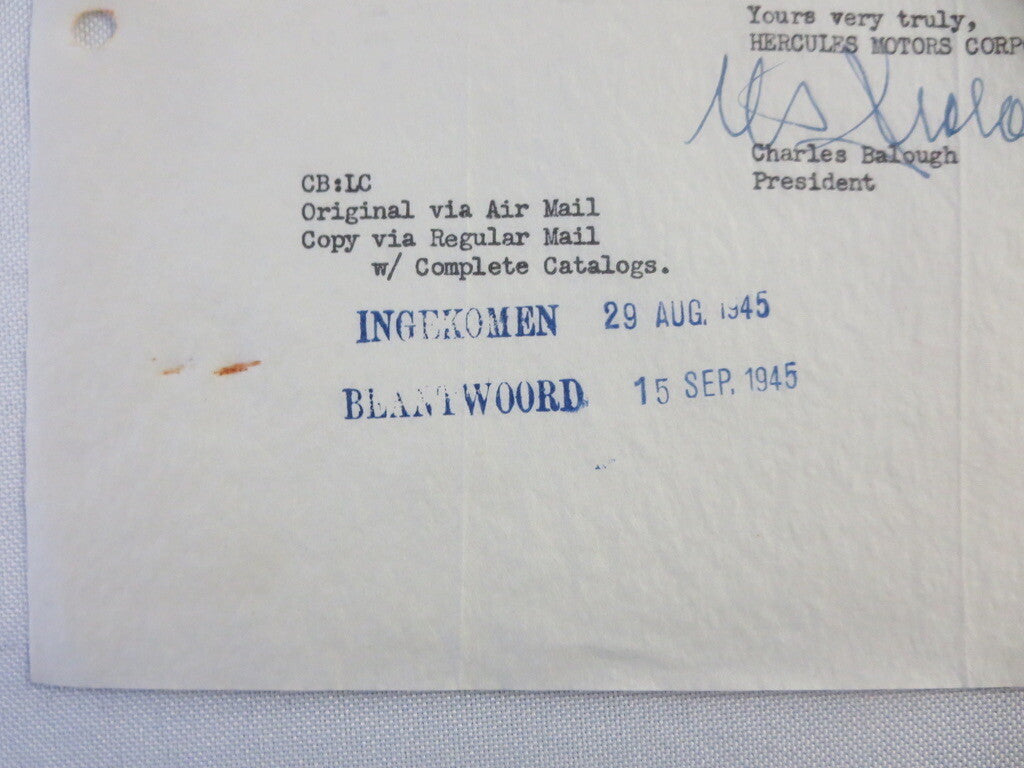 Yours very truly,
HERCULES MOTORS CORP
Charles Balough
President
CB:LC
Original via Air Mail
Copy via Regular Mail
w/ Complete Catalogs.
INGEKOMEN 29 AUG. 1945
BEANTWOORD 15 SEP. 1945